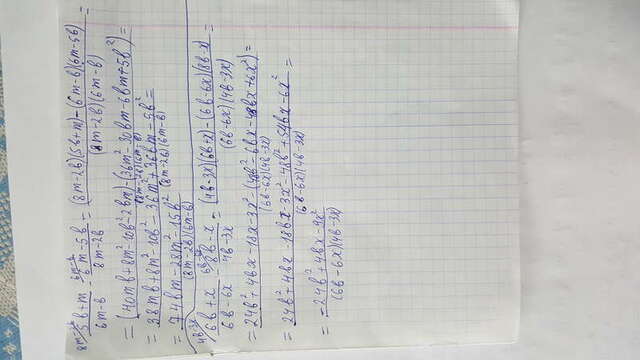 8m-2b 6m-b
5b+m / 6m-b - 6m-5b / 8m-2b = (8m-2b)(5b+m)-(6m-b)(6m-5b) / (8m-2b)(6m-b) =
= (40mb+8m²-10b²-2bm)-(36m²-30bm-6bm+5b²) / (8m-2b)(6m-b) =
= 38mb+8m²-10b²-36m²+36bm-5b² / (8m-2b)(6m-b) =
= 74bm-28m²-15b² / (8m-2b)(6m-b)
4b-3x 6b-6x
6b+x / 6b-6x - 8b-x / 4b-3x = (4b-3x)(6b+x)-(6b-6x)(8b-x) / (6b-6x)(4b-3x) =
= 24b²+4bx-18x-3x²-(48b²-6bx-48bx+6x²) / (6b-6x)(4b-3x) =
= 24b²+4bx-18bx-3x²-48b²+54bx-6x² / (6b-6x)(4b-3x) =
= -24b²+4bx-9x² / (6b-6x)(4b-3x)